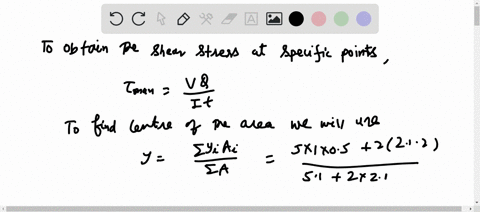 To obtain the shear stress at specific points,
τmax = VQ / It
To find centre of the area we will use
y = Σyi Ai / ΣA = 5x1x0.5 + 2(2.1.2) / 5.1 + 2x2.1